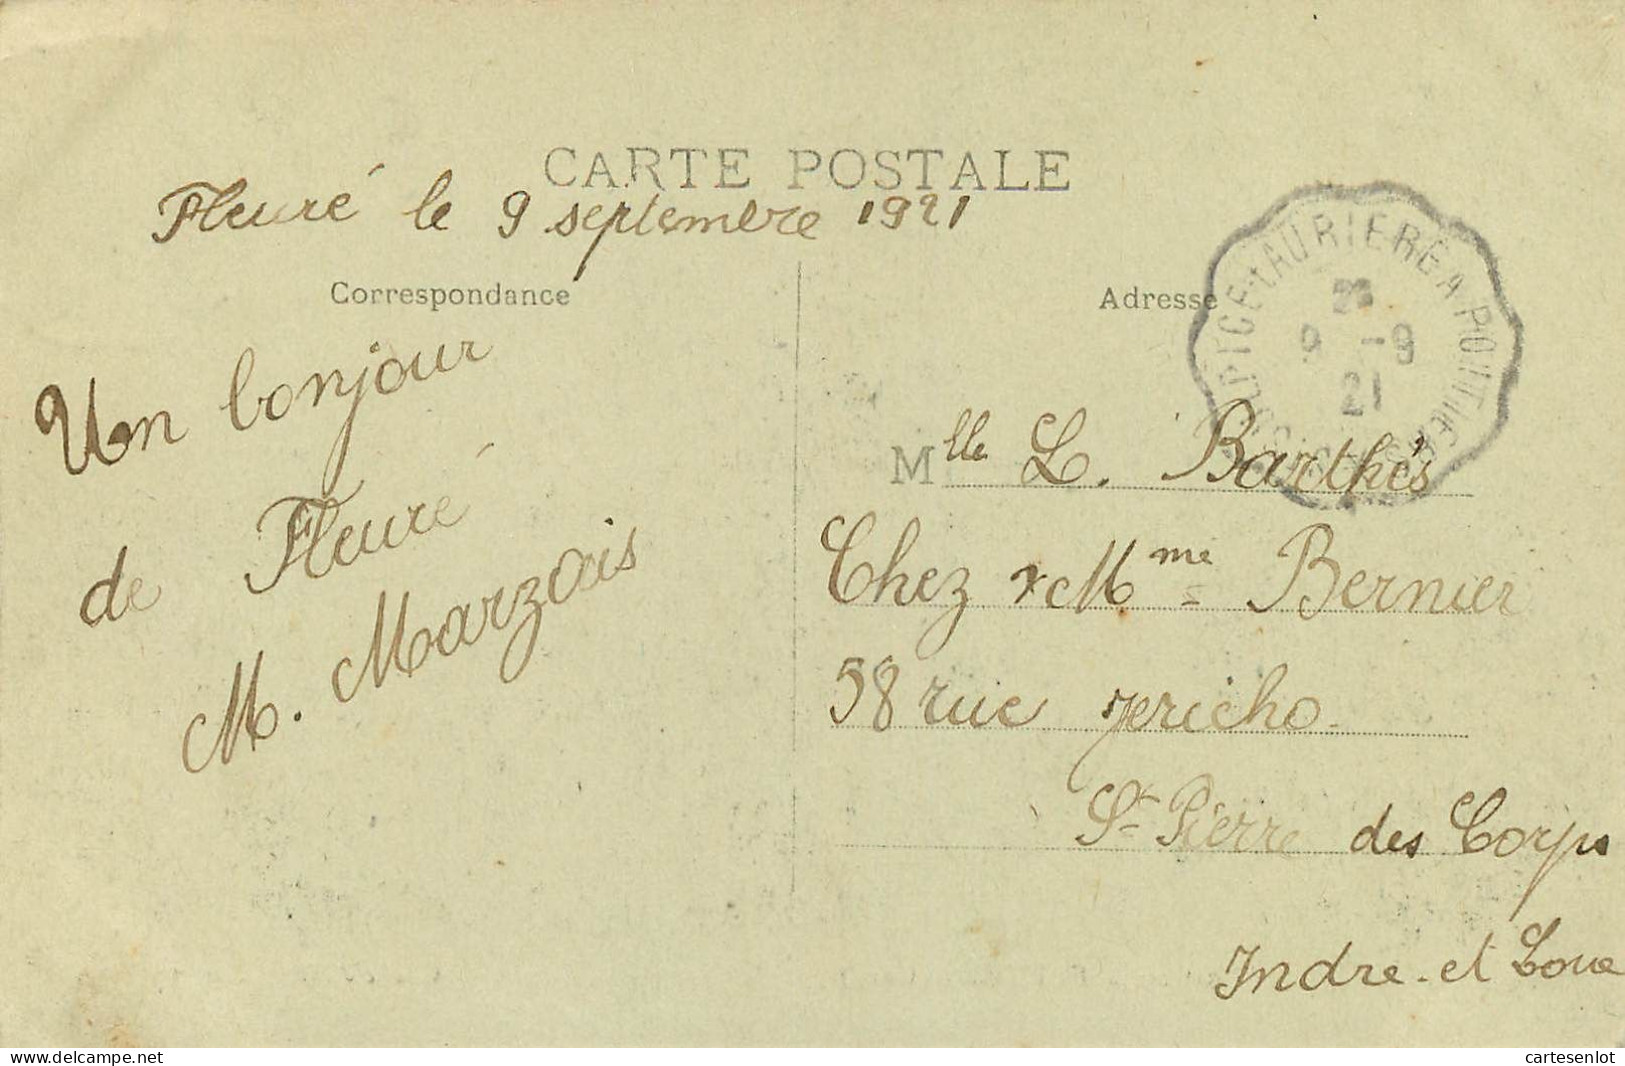 CARTE POSTALE
Fleuré le 9 septembre 1921
Correspondance
Un bonjour
de Fleuré
M. Marzais
Adresse
Mlle L. Barthés
Chez Mme Bernier
58 rue Jericho
St Pierre des Corps
Indre et Loire
LAURIERE A POITIERS
9 -9
21
www.delcampe.net
cartesenlot